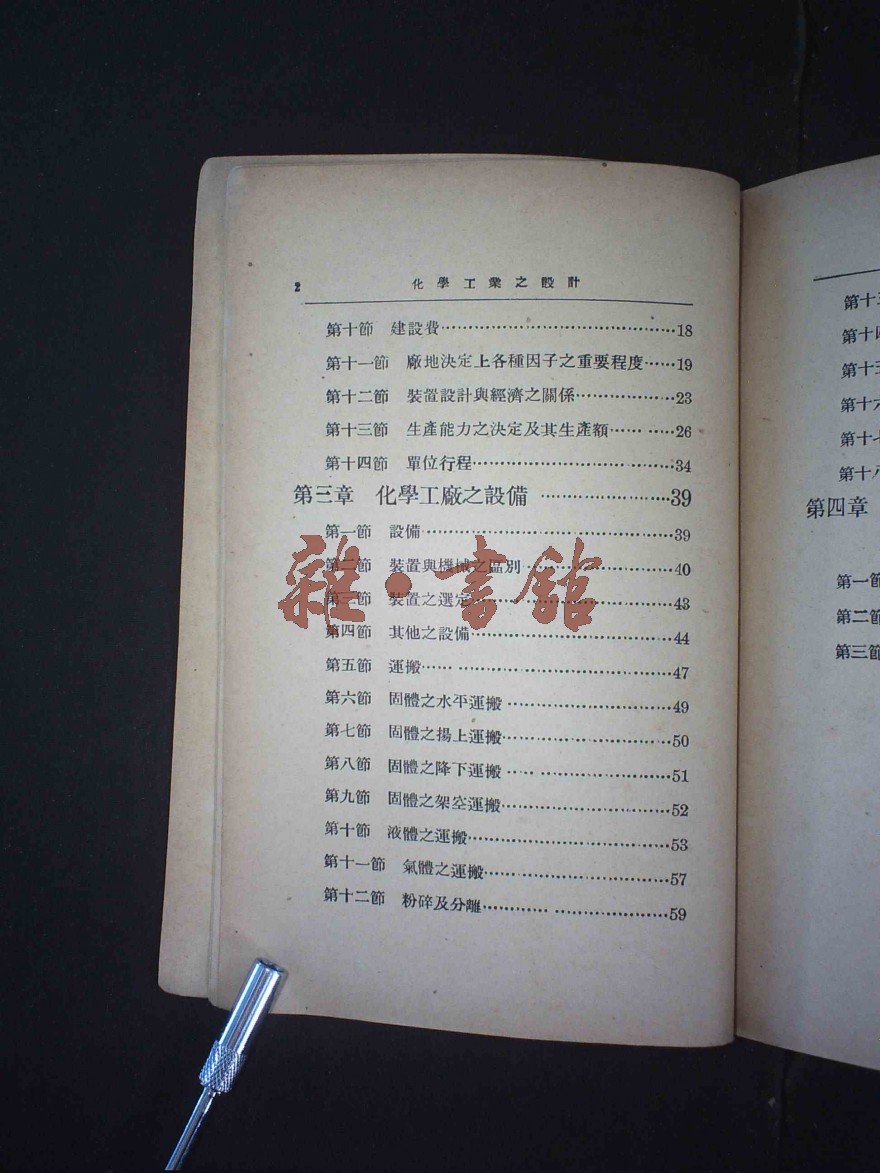 2 化學工業之設計
第十節 建設費……………………………………18
第十一節 廠地決定上各種因子之重要程度……19
第十二節 裝置設計與經濟之關係………………23
第十三節 生產能力之決定及其生產額…………26
第十四節 單位行程………………………………34
第三章 化學工廠之設備…………………39
第一節 設備………………………………………39
第二節 裝置與機械之區別………………………40
第三節 裝置之選定………………………………43
第四節 其他之設備………………………………44
第五節 運搬………………………………………47
第六節 固體之水平運搬…………………………49
第七節 固體之揚上運搬…………………………50
第八節 固體之降下運搬…………………………51
第九節 固體之架空運搬…………………………52
第十節 液體之運搬………………………………53
第十一節 氣體之運搬……………………………57
第十二節 粉碎及分離……………………………59
雜·書館
第十
第十
第十
第十六
第十七
第十八
第四章
第一節
第二節
第三節